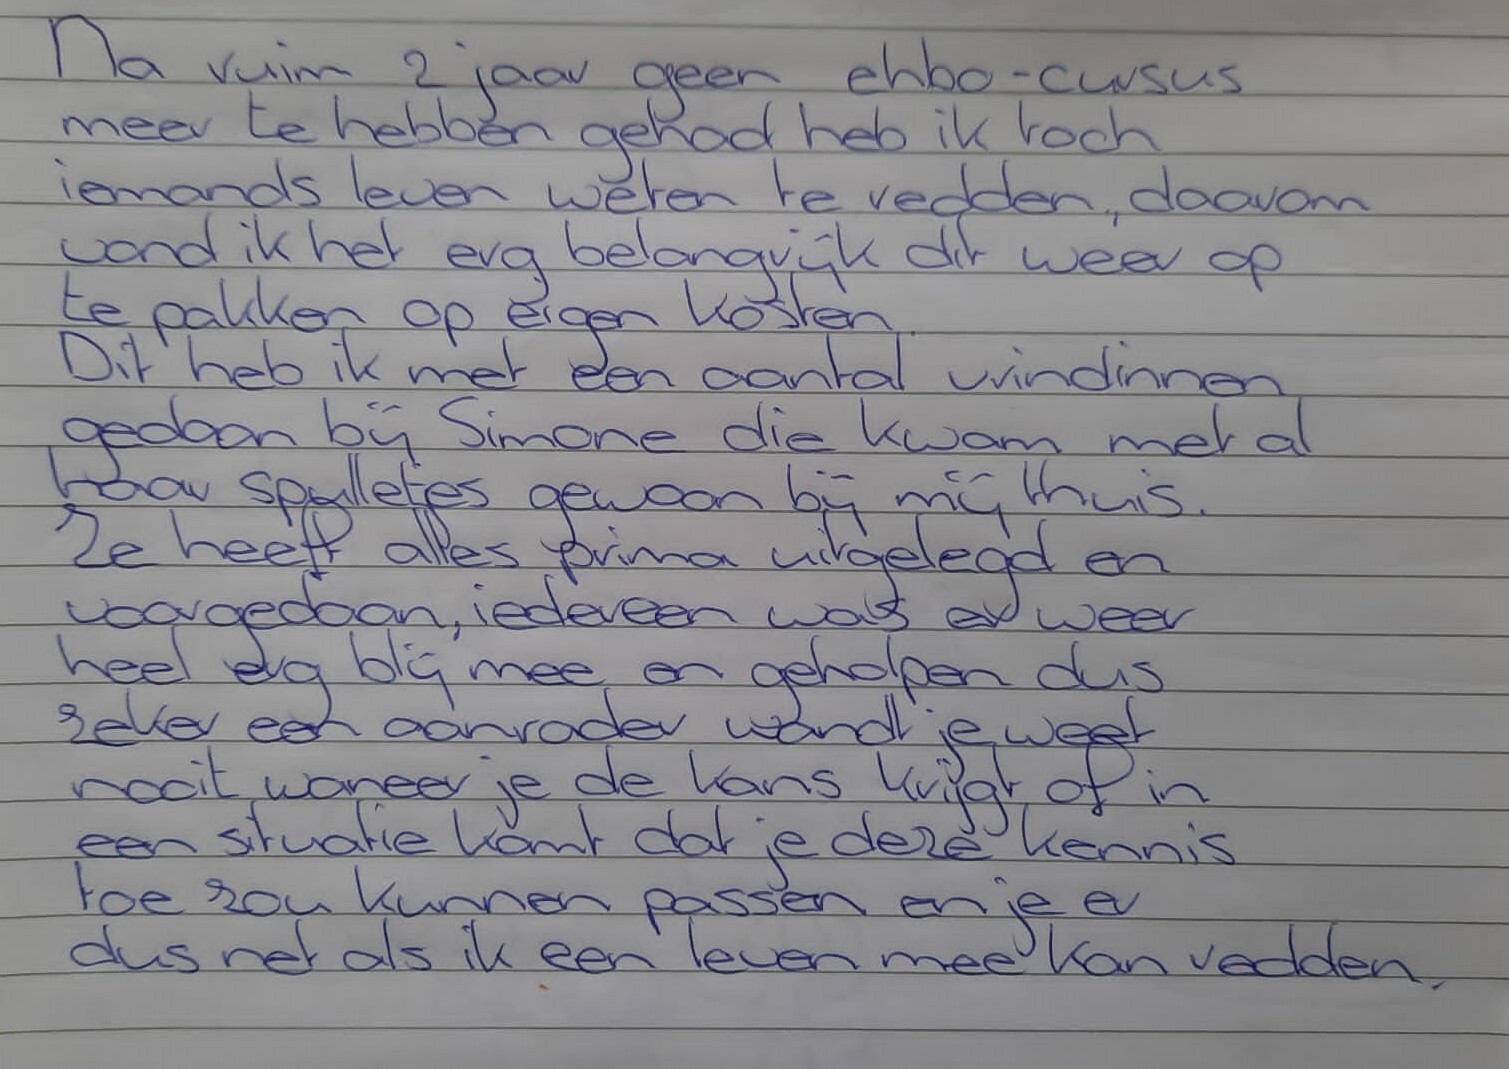 Na ruim 2 jaar geen ehbo-cursus
meer te hebben gehad heb ik toch
iemands leven weten te redden, daarom
vond ik het erg belangrijk dit weer op
te pakken op eigen kosten.
Dit heb ik met een aantal vrindinnen
gedaan bij Simone die kwam met al
haar spulletjes gewoon bij mij thuis.
Ze heeft alles prima uitgelegd en
voorgedaan, iedereen was er weer
heel erg blij mee en geholpen dus
zeker een aanrader wandt je weet
nooit waneer je de kans krijgt of in
een situatie komt dat je deze kennis
toe zou kunnen passen en je er
dus net als ik een leven mee kan redden.